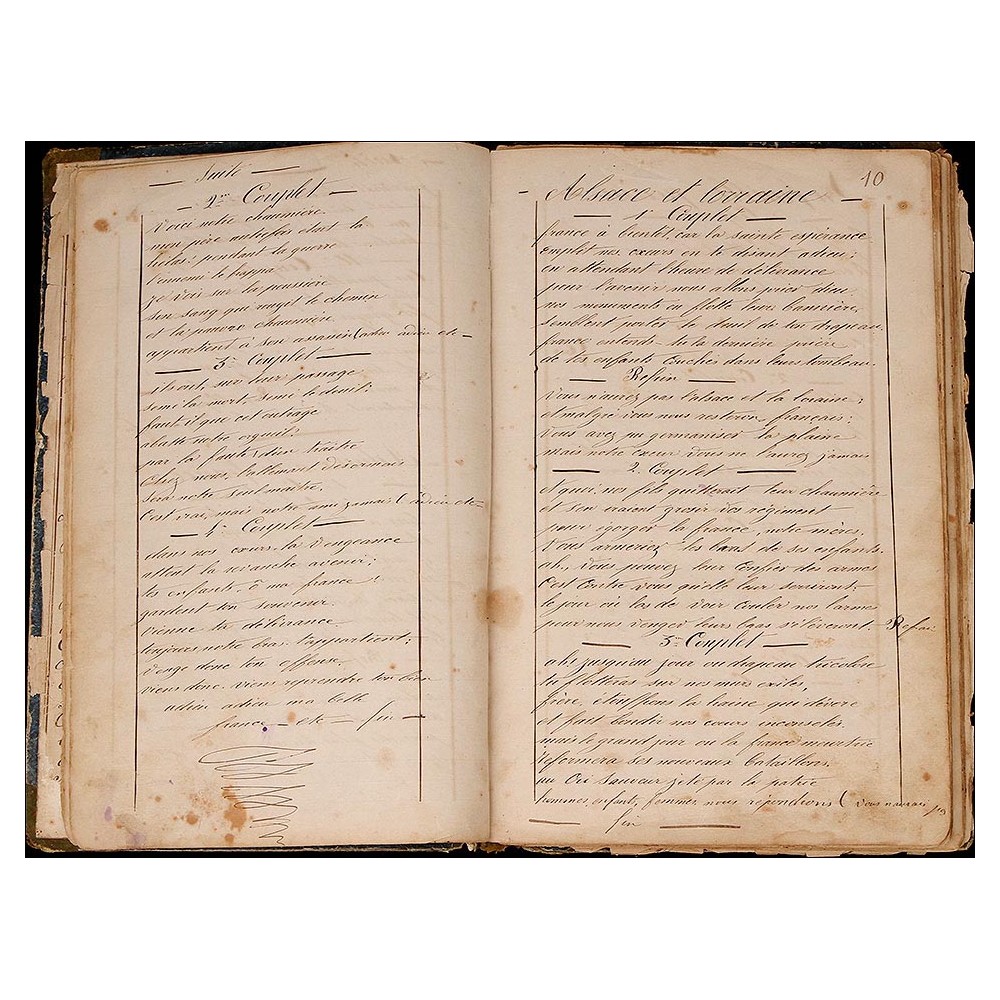 Suite
2me Couplet
Voici notre chaumière
mon père autrefois était là
hélas: pendant la guerre
l'ennemi le happa
je vois sur la poussière
son sang qui rougit le chemin
et la pauvre chaumière
appartient à son assassin (adieu adieu etc
3me Couplet
ils ont, sur leur passage
semé la mort semé le deuil:
faut il que cet outrage
abatte notre orgueil:
par la faute d'un traître
Chez nous, l'allemant désormais
sera notre seul maître,
C'est vrai, mais notre ami jamais ( adieu etc
4me Couplet
dans nos cœurs, la vengeance
attent la revanche avenir;
tes enfants, ô ma france!
gardent ton souvenir.
vienne ta délivrance.
toujours notre bras t'appartient;
venge donc ton offense.
viens donc. viens reprendre ton bien
adieu adieu ma belle
france — etc — fin
10
Alsace et lorraine
1r Couplet
france à bientôt, car la sainte espérance
emplit nos cœurs en te disant adieu;
en attendant l'heure de délivrance
pour l'avenir nous allons prier dieu
nos monuments ou flotte leur bannière
semblent porter le deuil de ton drapeau
france entends tu la dernière prière
de tes enfants couchés dans leurs tombeau.
Refrin
Vous n'aurez pas l'alsace et la loraine;
et malgré vous nous resteron français;
Vous avez pu germaniser la plaine
mais notre cœur vous ne l'aurez jamais
2. Couplet
et quoi, nos fils quitterait leur chaumière
et s'en iraient grosir vos régiment
pour égorger la france, notre mère,
Vous armeriez les bras de ses enfants.
ah, vous pouvez leur confier des armes
C'est contre vous qu'elle leur serviront.
le jour ou las de voir couler nos larmes
pour nous venger leurs bras s'élèveront. Refrin
3me Couplet
ah! jusqu'au jour ou drapeau tricolore
tu flotteras sur nos murs exilés,
frère, étouffons la haine qui dévore
et fait bondir nos cœurs inconsolés.
mais le grand jour ou la france meurtrie
reformera ses nouveaux bataillons.
au Cri sauveur jeté par la patrie
hommes, enfant, femmes nous répondrons ( Vous n'aurai pas
fin